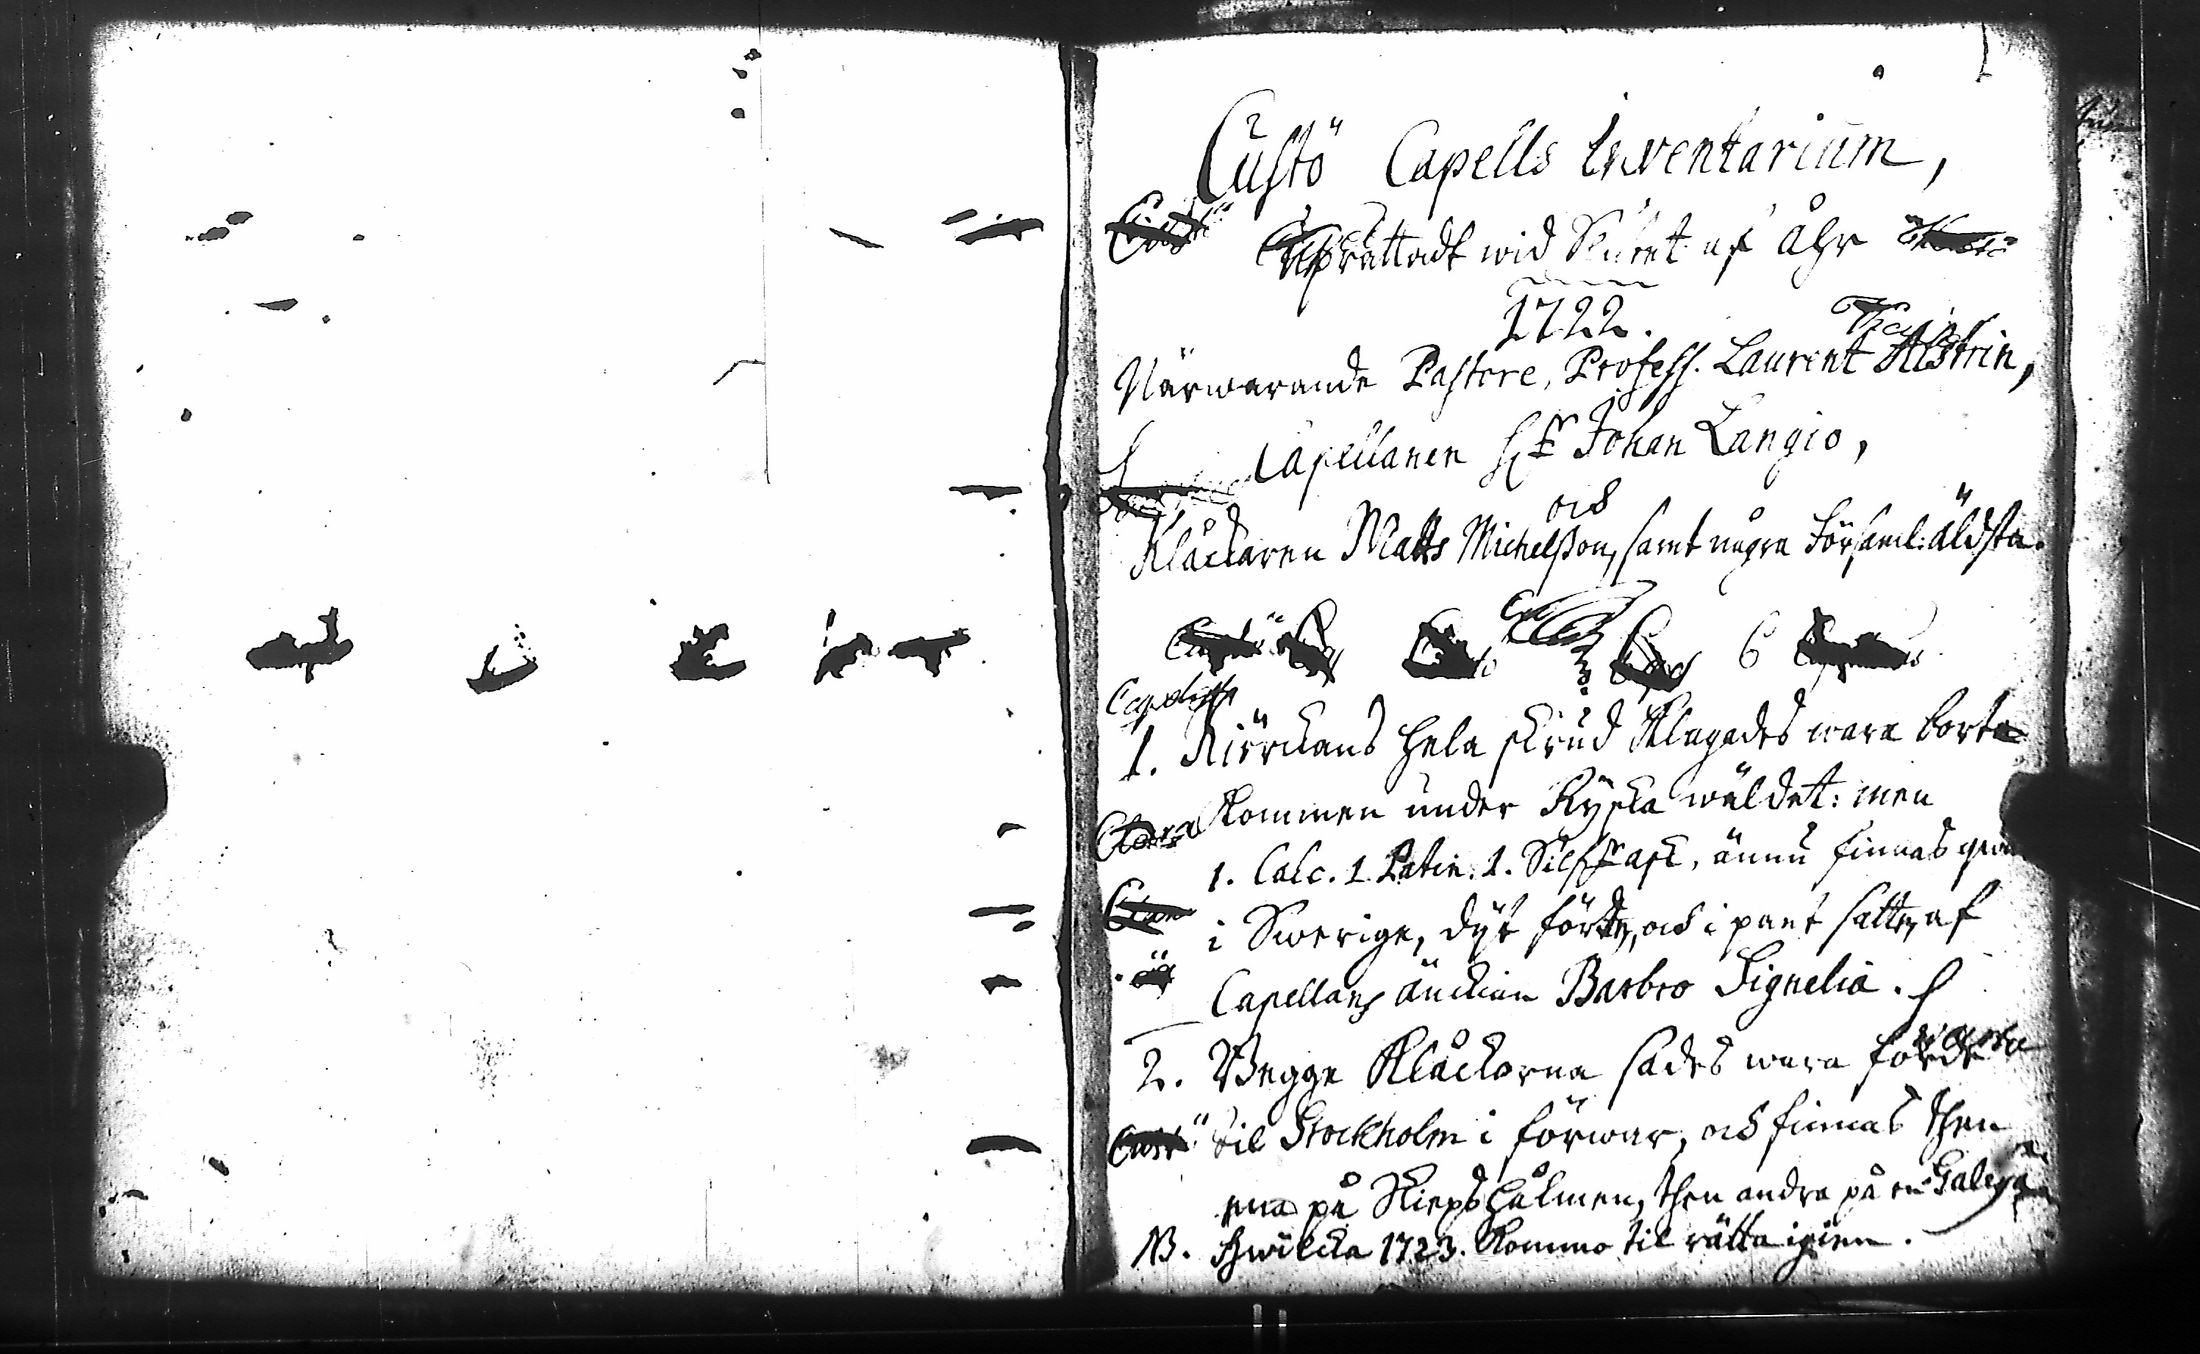 Custö Capells Inventarium,
Uprättadt wid Slutet af Åhr
1722.
Närwarande Pastore, Profess. Laurent Alstrin,
Capellanen Hr Johan Langio,
och
Klåckaren Matts Michelsson, samt några Församl: äldsta.
1. Kiörckans hela skrud klagades wara borta
kommen under Ryska wäldet: men
1. Calc. 1. Patin. 1. Silf. ask, ännu finnas
i Swerige, dÿt förde, och i pant satte, af
Capellans änckian Barbro Signelia.
2. Begge Klåckorna sades wara förde
til Stockholm i förwar, och finnas then
ena på Skieps hålmen, then andra på en Galeya
NB. hwilcka 1723. kommo til rätta igien.